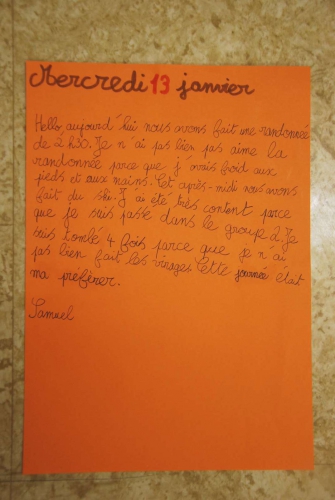 Mercredi 13 janvier
Hello, aujourd'hui nous avons fait une randonnée
de 2 h30. Je n'ai pas bien pas aime la
randonnée parce que j'avais froid aux
pieds et aux mains. Cet après-midi nous avons
fait du ski. J'ai été très content parce
que je suis passé dans le group 2. Je
suis tombé 4 fois parce que je n'ai
pas bien fait les virages. Cette journée était
ma préférer.
Samuel